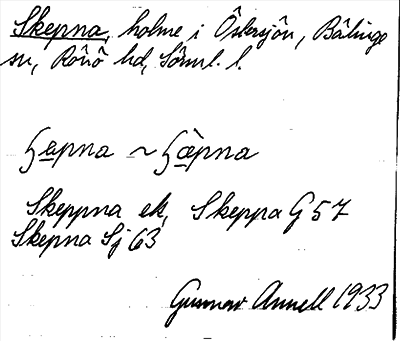 Skepna, holme i Östersjön, Bälinge
sn, Rönö hd, Sörml. l.
ʃèpna ~ ʃæ̀pna
Skeppna ek, Skeppa G 57
Skepna Sj 63
Gunnar Annell 1933